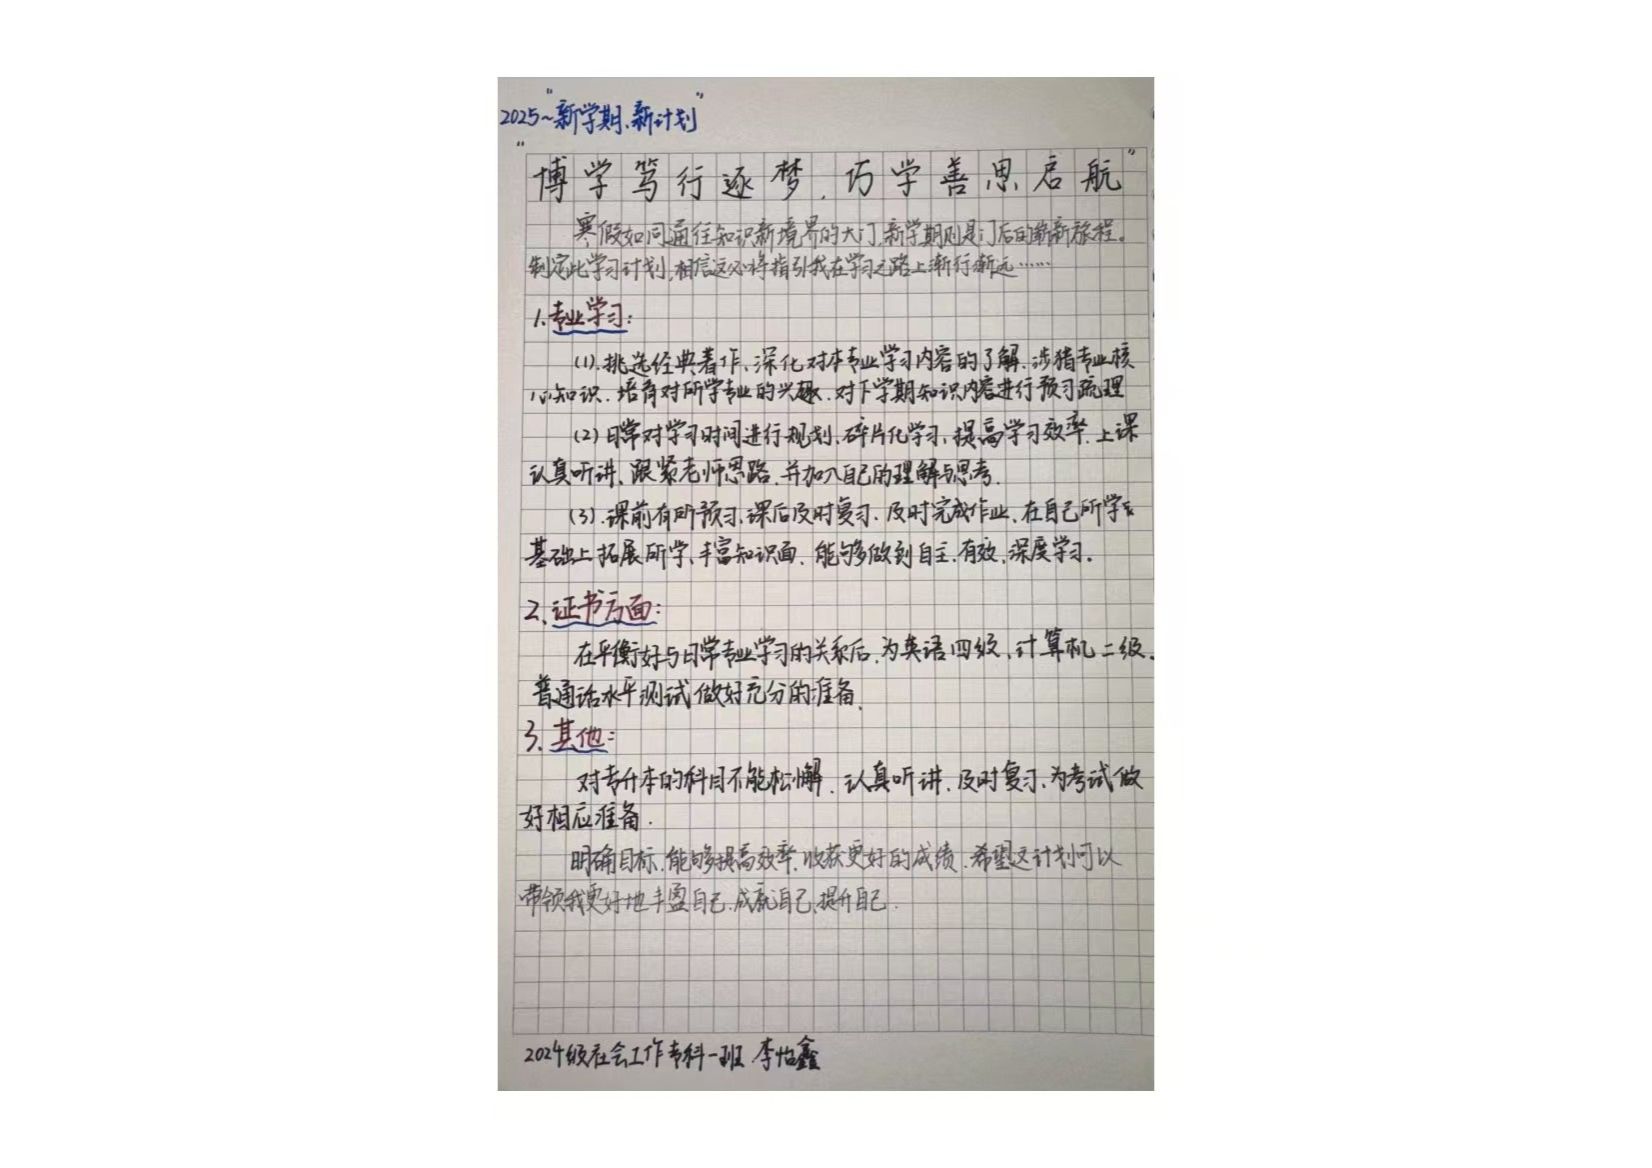 2025~“新学期、新计划”
“博学笃行逐梦，巧学善思启航”
寒假如同通往知识新境界的大门，新学期则是门后的崭新旅程。
制定此学习计划，相信这必将指引我在学习之路上渐行渐远……
1、专业学习：
(1).挑选经典著作，深化对本专业学习内容的了解、涉猎专业核
心知识、培育对所学专业的兴趣、对下学期知识内容进行预习疏理
(2)日常对学习时间进行规划、碎片化学习、提高学习效率、上课
认真听讲、跟紧老师思路、并加入自己的理解与思考.
(3).课前有所预习、课后及时复习、及时完成作业、在自己所学
基础上拓展所学、丰富知识面、能够做到自主、有效、深度学习.
2、证书方面：
在平衡好与日常专业学习的关系后，为英语四级、计算机二级、
普通话水平测试做好充分的准备.
3、其他：
对专升本的科目不能松懈、认真听讲、及时复习、为考试做
好相应准备.
明确目标、能够提高效率、收获更好的成绩、希望这计划可以
带领我更好地丰盈自己、成就自己、提升自己.
2024级社会工作专科一班 李怡鑫